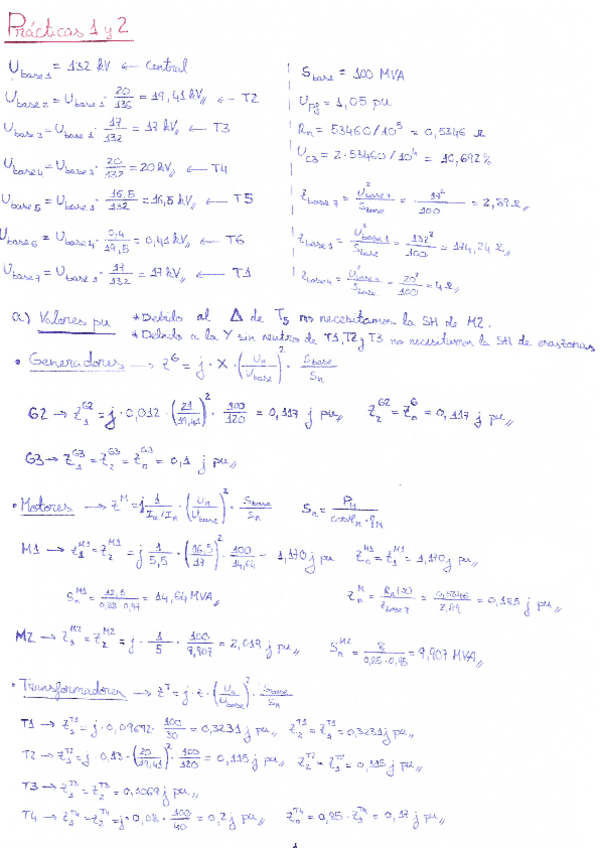 Prácticas 1 y 2
U base1 = 132 kV ← Central
U base2 = U base1 · 20/136 = 19,41 kV ← T2
U base3 = U base1 · 17/132 = 17 kV ← T3
U base4 = U base1 · 20/132 = 20 kV ← T4
U base5 = U base1 · 16,5/132 = 16,5 kV ← T5
U base6 = U base4 · 0,4/19,5 = 0,41 kV ← T6
U base7 = U base1 · 17/132 = 17 kV ← T1
S base = 100 MVA
U pf = 1,05 pu
Rn = 53460/10⁵ = 0,5346 Ω
Ucc3 = 2·53460/10⁴ = 10,692%
Z base7 = U²base7/S base = 17²/100 = 2,89 Ω
Z base1 = U²base1/S base = 132²/100 = 174,24 Ω
Z base4 = U²base4/S base = 20²/100 = 4 Ω
a) Valores pu * Debido al Δ de T5 no necesitamos la SH de M2.
* Debido a la Y sin neutro de T1, T2 y T3 no necesitamos la SH de
• Generadores → Z^G = j · X · (Un/Ubase)² · Sbase/Sn
G2 → Z1^G2 = j · 0,012 · (21/19,41)² · 100/120 = 0,117 j pu Z2^G2 = Zn^G = 0,117 j pu
G3 → Z1^G3 = Z2^G3 = Zn^G3 = 0,1 j pu
• Motores → Z^M = j 1/(Ia/In) · (Un/Ubase)² · Sbase/Sn Sn = Pn/(cosφn · ηn)
M1 → Z1^M1 = Z2^M1 = j 1/5,5 · (16,5/17)² · 100/14,64 = 1,170 j pu Zo^M1 = Z1^M1 = 1,170 j pu
Sn^M1 = 12,5/(0,88 · 0,97) = 14,64 MVA Zn^M = Rn(Ω)/Zbase7 = 0,5346/2,89 = 0,185 j pu
M2 → Z1^M2 = Z2^M2 = j · 1/5 · 100/9,907 = 2,019 j pu Sn^M2 = 8/(0,85 · 0,95) = 9,907 MVA
• Transformadores → Z^T = j · z · (Un/Ubase)² · Sbase/Sn
T1 → Z1^T1 = j · 0,09692 · 100/30 = 0,3231 j pu Z2^T1 = Z1^T1 = 0,3231 j pu
T2 → Z1^T2 = j · 0,13 · (20/19,41)² · 100/120 = 0,115 j pu Z2^T2 = Z1^T2 = 0,115 j pu
T3 → Z1^T3 = Z2^T3 = 0,1069 j pu
T4 → Z1^T4 = Z2^T4 = j · 0,08 · 100/40 = 0,2 j pu Zo^T4 = 0,85 · Z1^T4 = 0,17 j pu
1